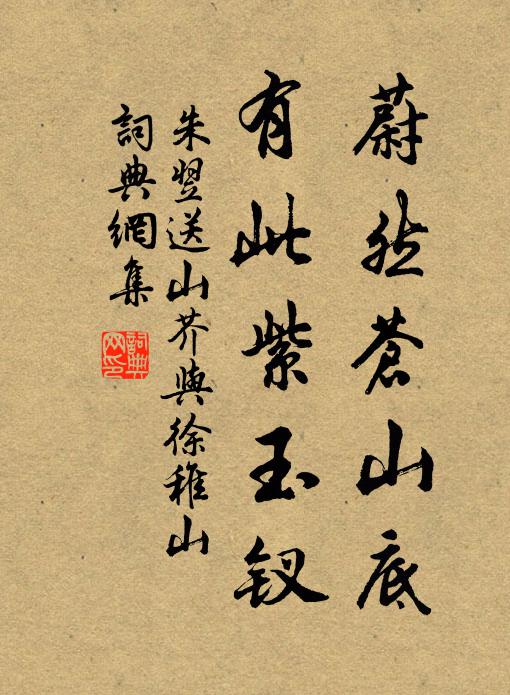 蔚然蒼山底
有此紫玉釵
朱翌送山芥與徐稚山
詞典網集
詞典網印